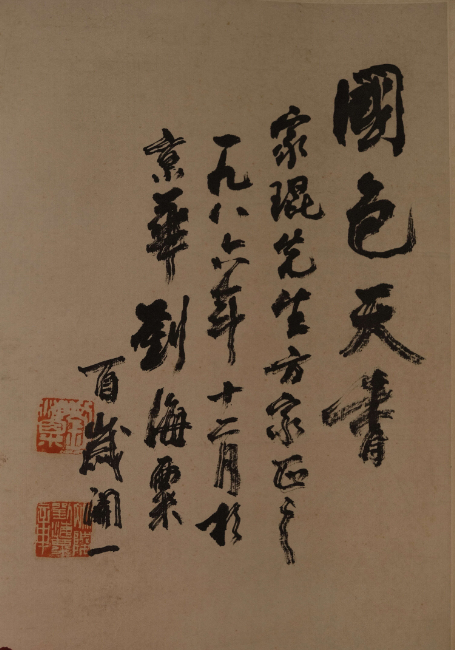 國色天香
家琨先生方家正之
一九八六年十二月於
京華劉海粟
百歲開一